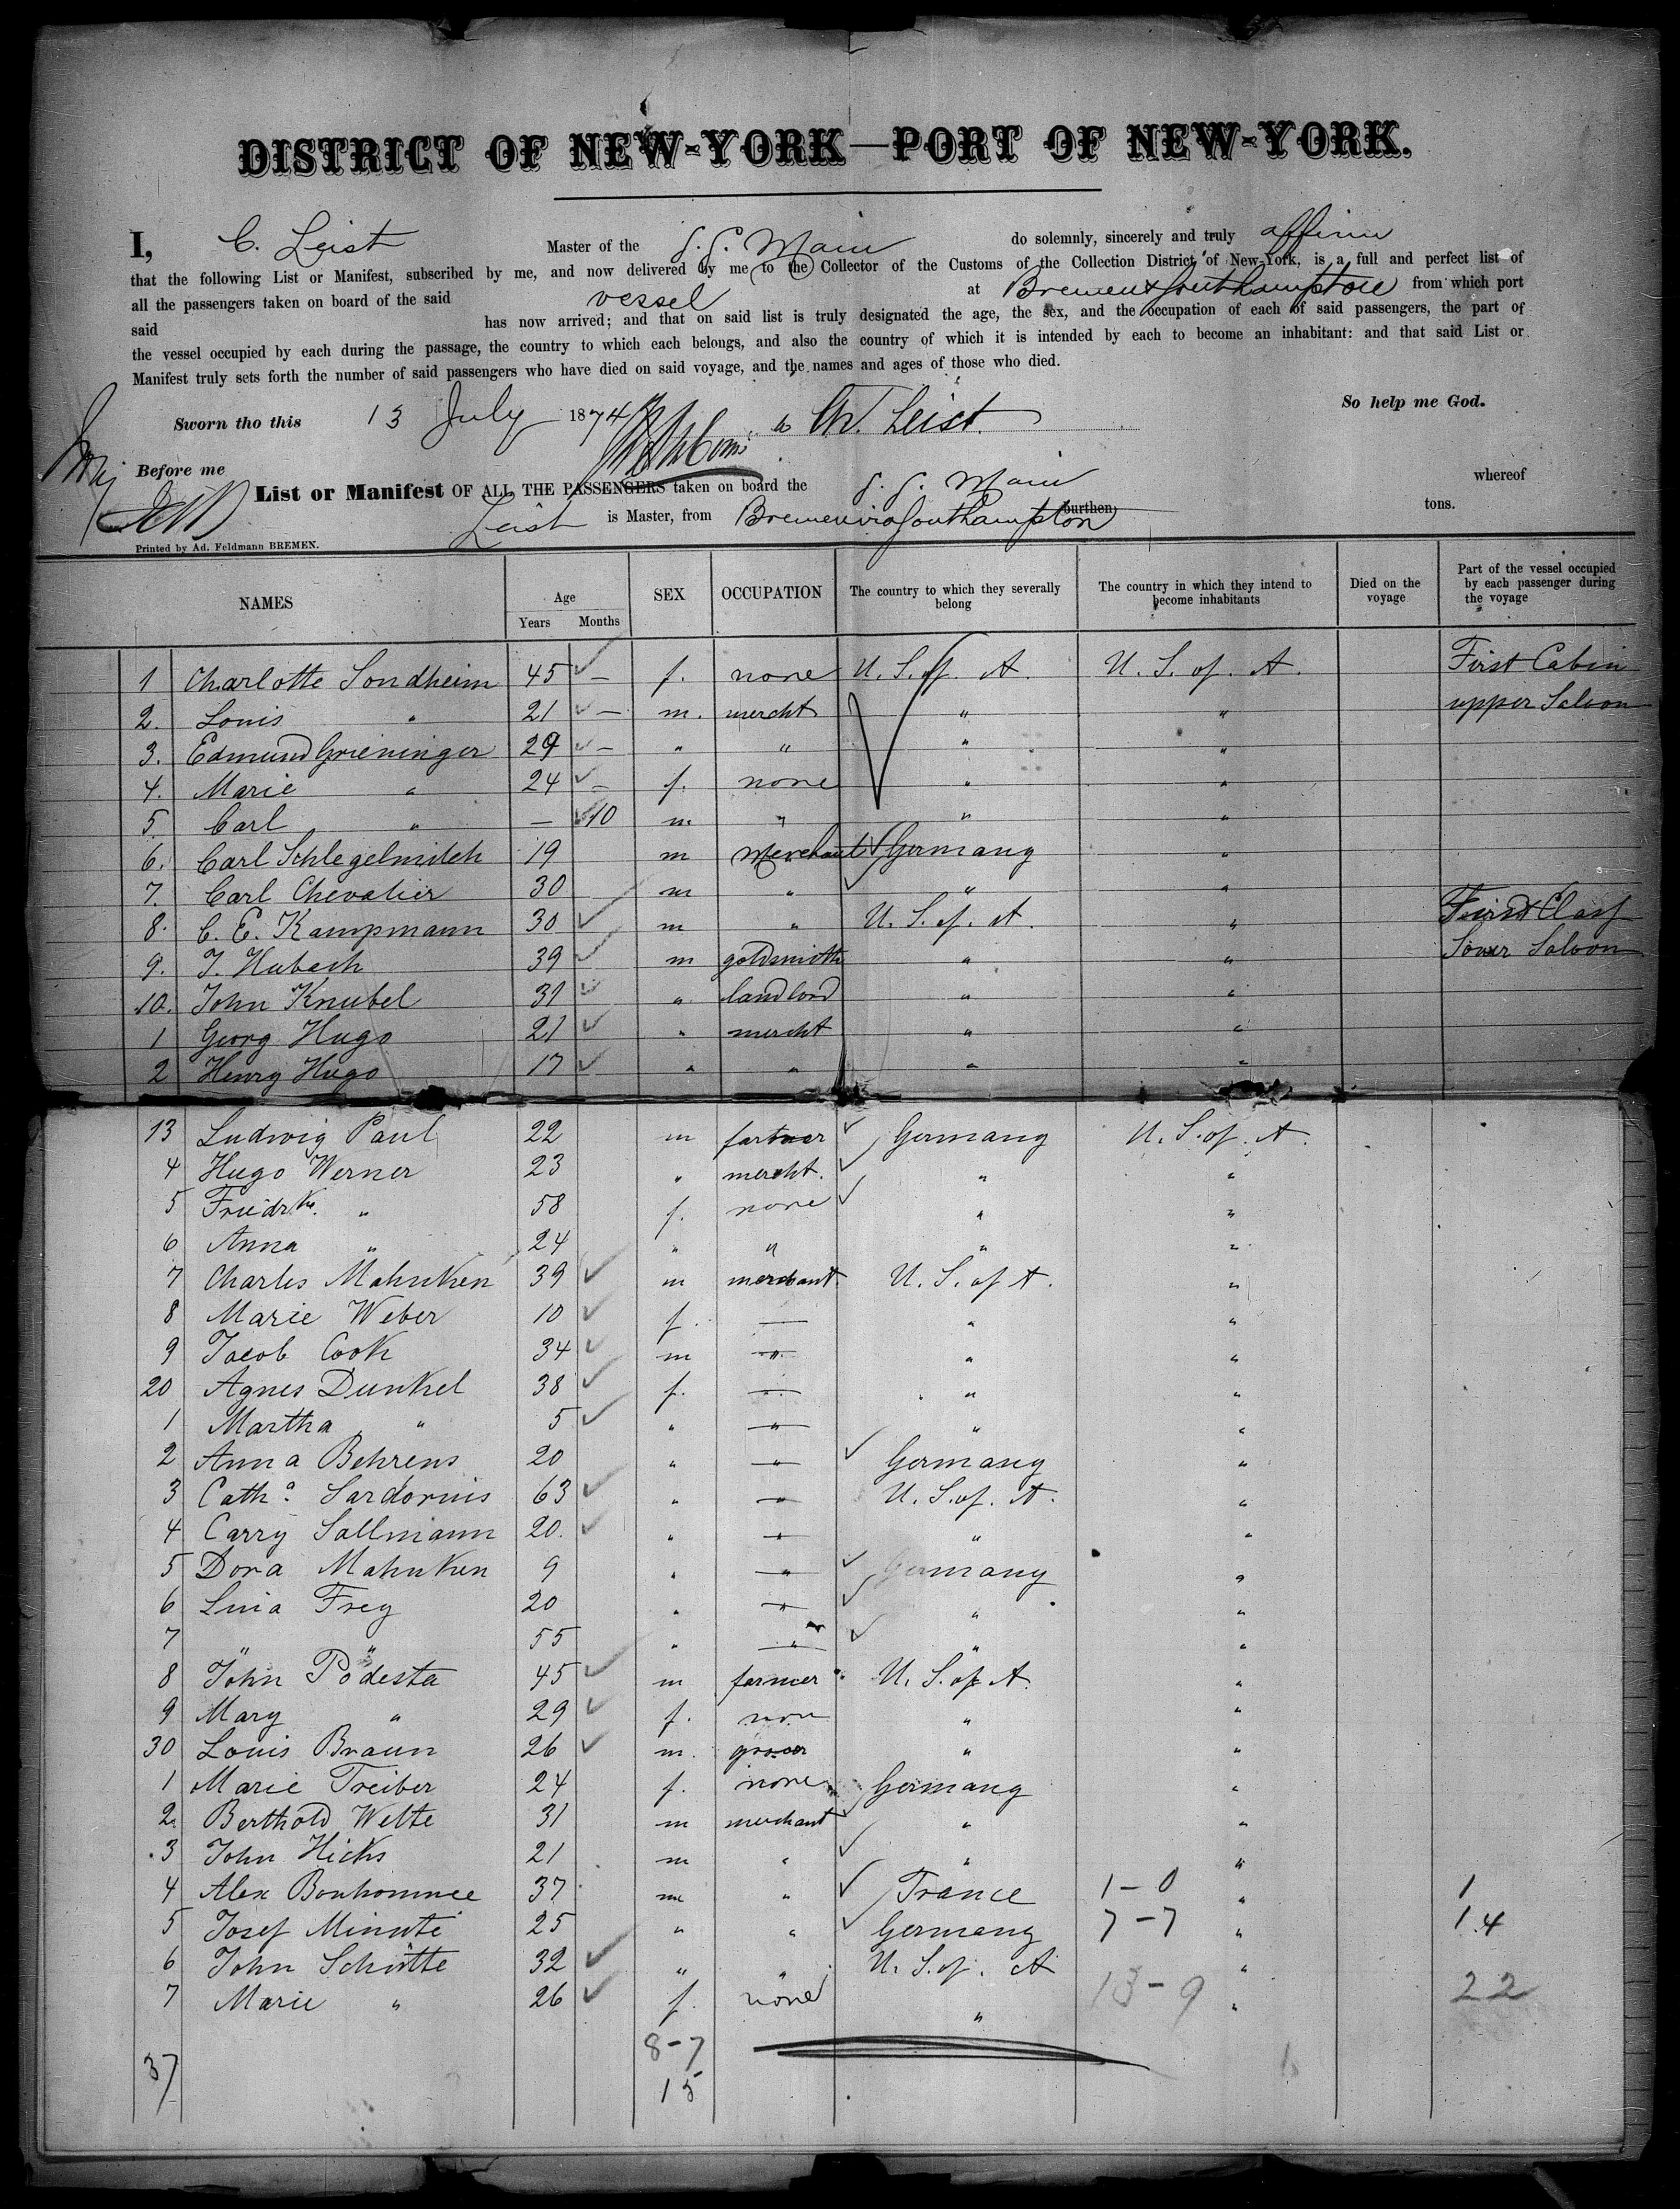 DISTRICT OF NEW-YORK—PORT OF NEW-YORK.
I, C. Leist Master of the S.S. Main do solemnly, sincerely and truly affirm
that the following List or Manifest, subscribed by me, and now delivered by me to the Collector of the Customs of the Collection District of New-York, is a full and perfect list of
all the passengers taken on board of the said vessel at Bremen & Southampton from which port
said has now arrived; and that on said list is truly designated the age, the sex, and the occupation of each of said passengers, the part of
the vessel occupied by each during the passage, the country to which each belongs, and also the country of which it is intended by each to become an inhabitant: and that said List or
Manifest truly sets forth the number of said passengers who have died on said voyage, and the names and ages of those who died.
So help me God.
Sworn tho this 13 July 1874 Leist
Before me
List or Manifest OF ALL THE PASSENGERS taken on board the S.S. Main whereof
Leist is Master, from Bremen via Southampton burthen tons.
Printed by Ad. Feldmann BREMEN.
NAMES Age Years Months SEX OCCUPATION The country to which they severally belong The country in which they intend to become inhabitants Died on the voyage Part of the vessel occupied by each passenger during the voyage
1 Charlotte Sondheim 45 — f. none U. S. of. A. U. S. of. A. First Cabin
2. Louis " 21 — m. mercht " " upper Saloon
3. Edmund Grieninger 29 — " " " "
4. Marie " 24 — f. none " "
5. Carl " — 10 m " " "
6. Carl Schlegelmilch 19 m Merchant Germany "
7. Carl Chevalier 30 m " " "
8. C. E. Kampmann 30 m " U. S. of. A. " First Class
9. J. Hubach 39 m goldsmith " " Lower Saloon
10. John Knubel 31 " landlord " "
1 Georg Hugo 21 " mercht " "
2 Henry Hugo 17 " " " "
13 Ludwig Paul 22 m farmer Germany U. S. of. A.
4 Hugo Werner 23 " mercht. " "
5 Friedrke. " 58 f. none " "
6 Anna " 24 " " " "
7 Charles Mahnken 39 m merchant U. S. of A. "
8 Marie Weber 10 f. — " "
9 Jacob Cook 34 m " " "
20 Agnes Dunkel 38 f. — " "
1 Martha " 5 " " " "
2 Anna Behrens 20 " " Germany "
3 Cath.a Sardorius 63 " " U. S. of. A. "
4 Carry Sallmann 20. " " " "
5 Dora Mahnken 9 " " Germany "
6 Lina Frey 20 " " " "
7 " " 55 " " " "
8 John Podesta 45 m farmer U. S. of A. "
9 Mary " 29 f. non " "
30 Louis Braun 26 m. grocer " "
1 Marie Treiber 24 f. none Germany "
2. Berthold Welte 31 m merchant " "
3 John Hicks 21 m " " "
4 Alex Bonhommee 37 m " France 1-0 " 1
5 Josef Minuté 25 " " Germany 7-7 " 14
6 John Schütte 32 " " U. S. of. A "
7 Marie " 26 f. none " 13-9 " 22
8-7
37
15